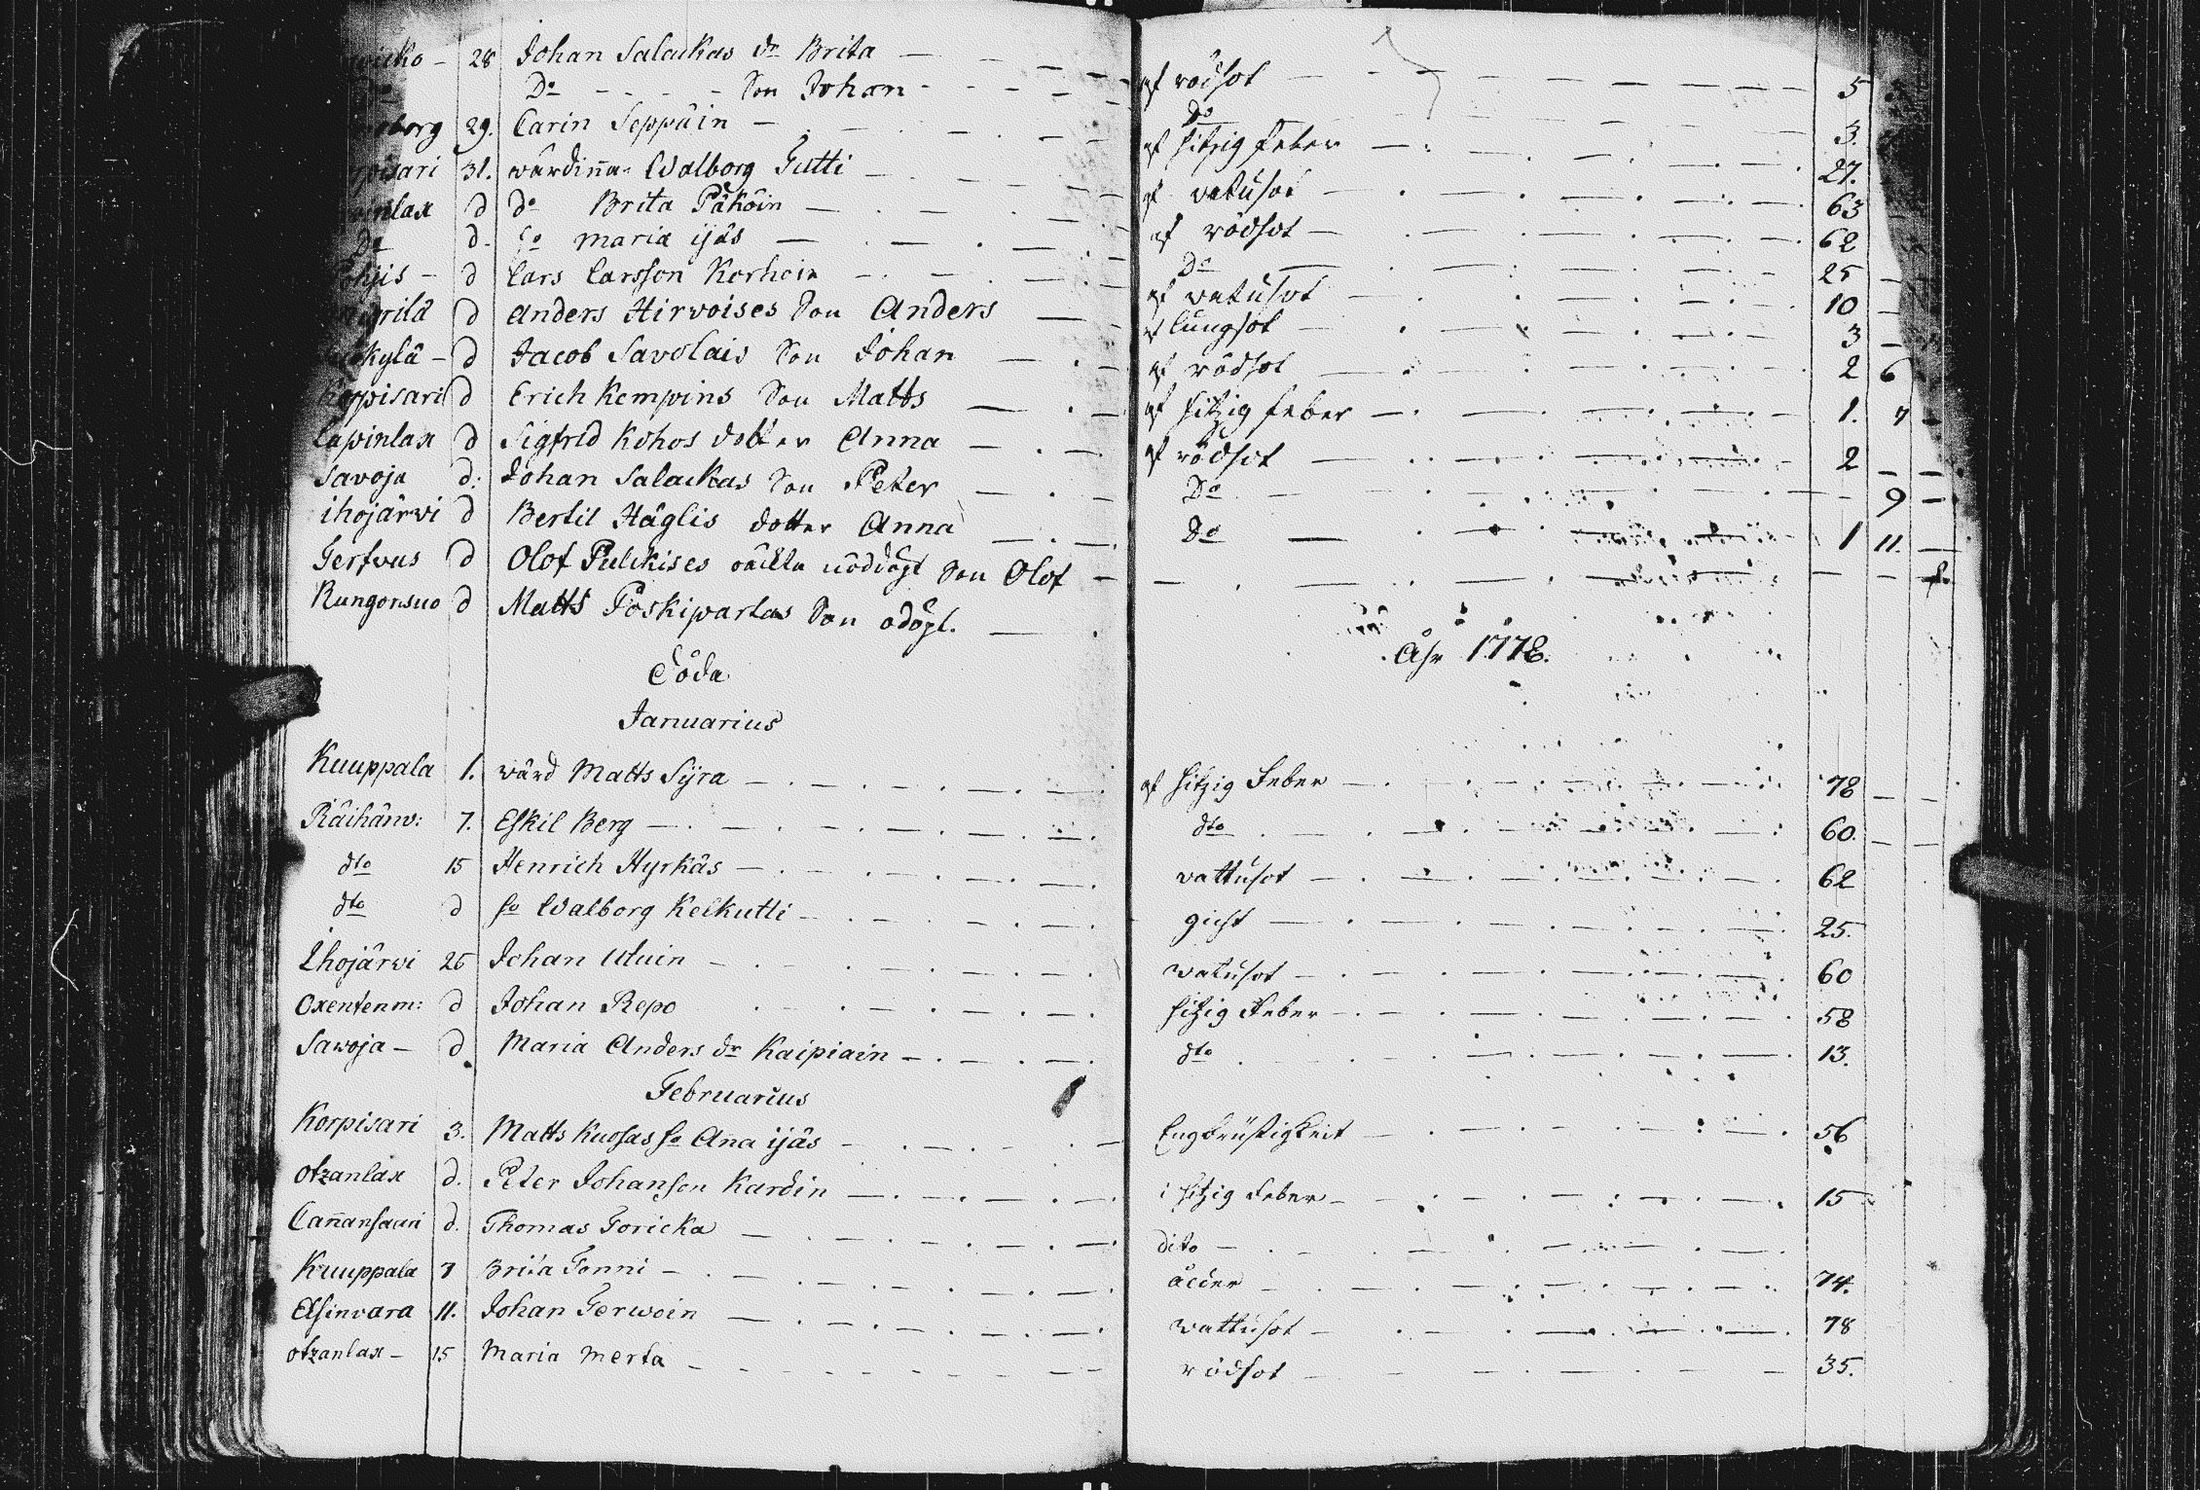 28 Johan Salackas dr Brita — af rödsot — 5
Do — son Johan — Do — 3.
29. Carin Seppäin — af hitzig feber — 27.
31. wärdinna Walborg Tutti — af vatusot — 63
d do Brita Päköin — af rödsot — 62
Do d. ho Maria ijäs — Do — 25 —
d Lars Larsson Korhoin — af watusot — 10 —
d Anders Hirvoises son Anders — af lungsot — 3 —
d Jacob Savolais son Johan — af rödsot — 2 6
Korpisari d Erich Kempins son Matts — af hitzig feber — 1. 7 —
Lapinlax d Sigfrid Kohos dotter Anna — af rödsot — 2 — —
Savoja d: Johan Salackas son Peter — Do — 9 —
ihojärwi d Bertil Häglis dotter Anna — Do — 1 11. —
Terfvus d Olof Pulckises oäckta nöddögt son Olof —
Rungonsuo d Matts Poskipartas son odögt. —
Åhr 1778.
Döda
Januarius
Kuuppala 1. wärd Matts Syra — af hitzig Feber — 78 — —
Räihänw: 7. Eskil Berg — dto — 60. — —
dto 15 Henrich Hyrkäs — wattusot — 62
dto d ho Walborg Kelkutti — gicht — 25.
Ihojärwi 26 Johan Utuin — watusot — 60
Oxentenm: d Johan Repo — hitzig Feber — 58
Sawoja — d Maria Anders dr Kaipiain — dto — 13.
Februarius
Korpisari 3. Matts Kuosas ho Ana ijäs — Engbrüstigkeit — 56
Otzanlax d. Peter Johanson Kardin — i hitzig Feber — 15
Cannansaari d. Thomas Toricka — dito —
Kuuppala 7 Brita Tonni — ålder — 74.
Elsinvara 11. Johan Terwoin — wattusot — 78
Otzanlax — 15 Maria Merta — rödsot — 35.